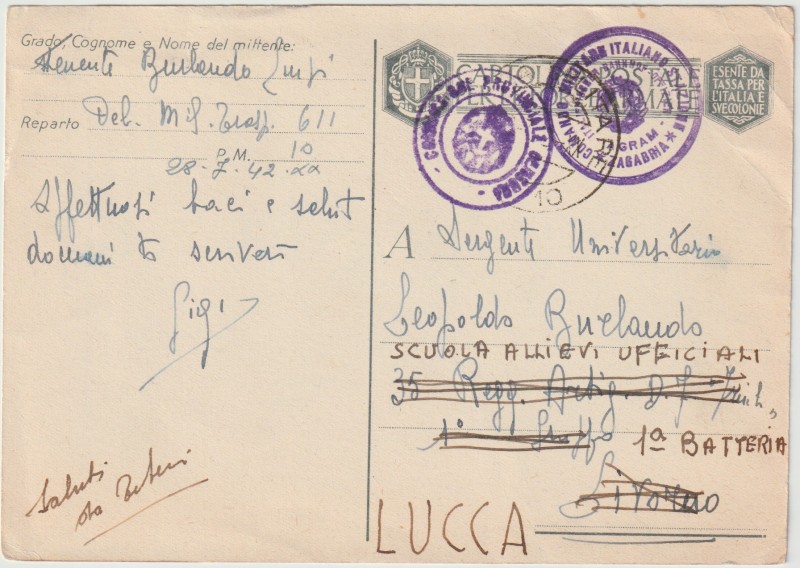 Grado, Cognome e Nome del mittente:
Tenente Burlando Luigi
Reparto Del. Mil. Trasp. 611
P. M. 10
28-7-42-XX
Affettuosi baci e saluti
domani ti scriverò
Gigi
Saluti
da
CARTOLINA POSTALE
PER LE FORZE ARMATE
ESENTE DA
TASSA PER
L'ITALIA E
SUE COLONIE
PROVINCIALE
MILITARE ITALIANO
ZAGABRIA
10
A Sergente Universitario
Leopoldo Burlando
SCUOLA ALLIEVI UFFICIALI
35 Regg. Artig. D. F.
1° Gruppo 1ª BATTERIA
Livorno
LUCCA